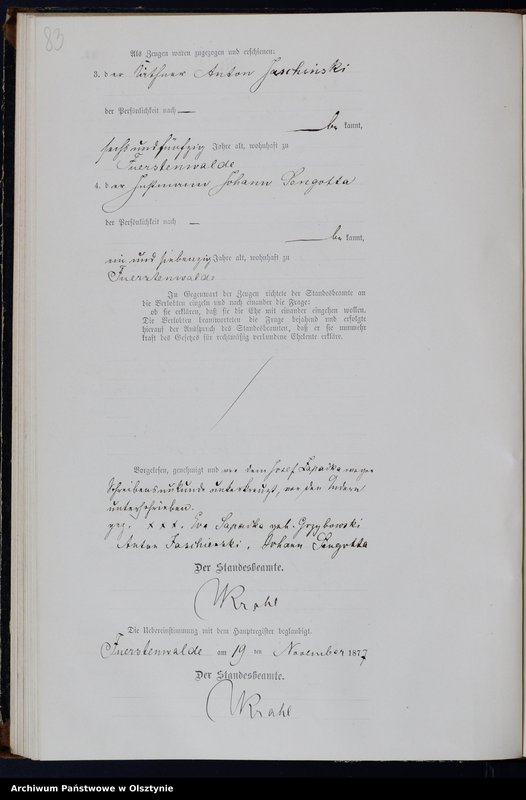 83
Als Zeugen waren zugezogen und erschienen:
3. der Käthner Anton Jaschinski
der Persönlichkeit nach —
be kannt,
sechs und fünfzig Jahre alt, wohnhaft zu
Fuerstenwalde
4. der Instmann Johann Sengotta
der Persönlichkeit nach —
be kannt,
ein und siebenzig Jahre alt, wohnhaft zu
Fuerstenwalde
In Gegenwart der Zeugen richtete der Standesbeamte an
die Verlobten einzeln und nach einander die Frage:
ob sie erklären, daß sie die Ehe mit einander eingehen wollen.
Die Verlobten beantworteten die Frage bejahend und erfolgte
hierauf der Ausspruch des Standesbeamten, daß er sie nunmehr
kraft des Gesetzes für rechtmäßig verbundene Eheleute erkläre.
Vorgelesen, genehmigt und von dem Josef Lapadka wegen
Schreibensunkunde unterkreuzt, von den Andern
unterschrieben.
gez. x x x. Eva Lapadka geb. Grzybowski
Anton Jaschinski, Johann Sengotta
Der Standesbeamte.
Krahl
Die Uebereinstimmung mit dem Hauptregister beglaubigt.
Fuerstenwalde am 19 ten November 1877
Der Standesbeamte.
Krahl
Archiwum Państwowe w Olsztynie